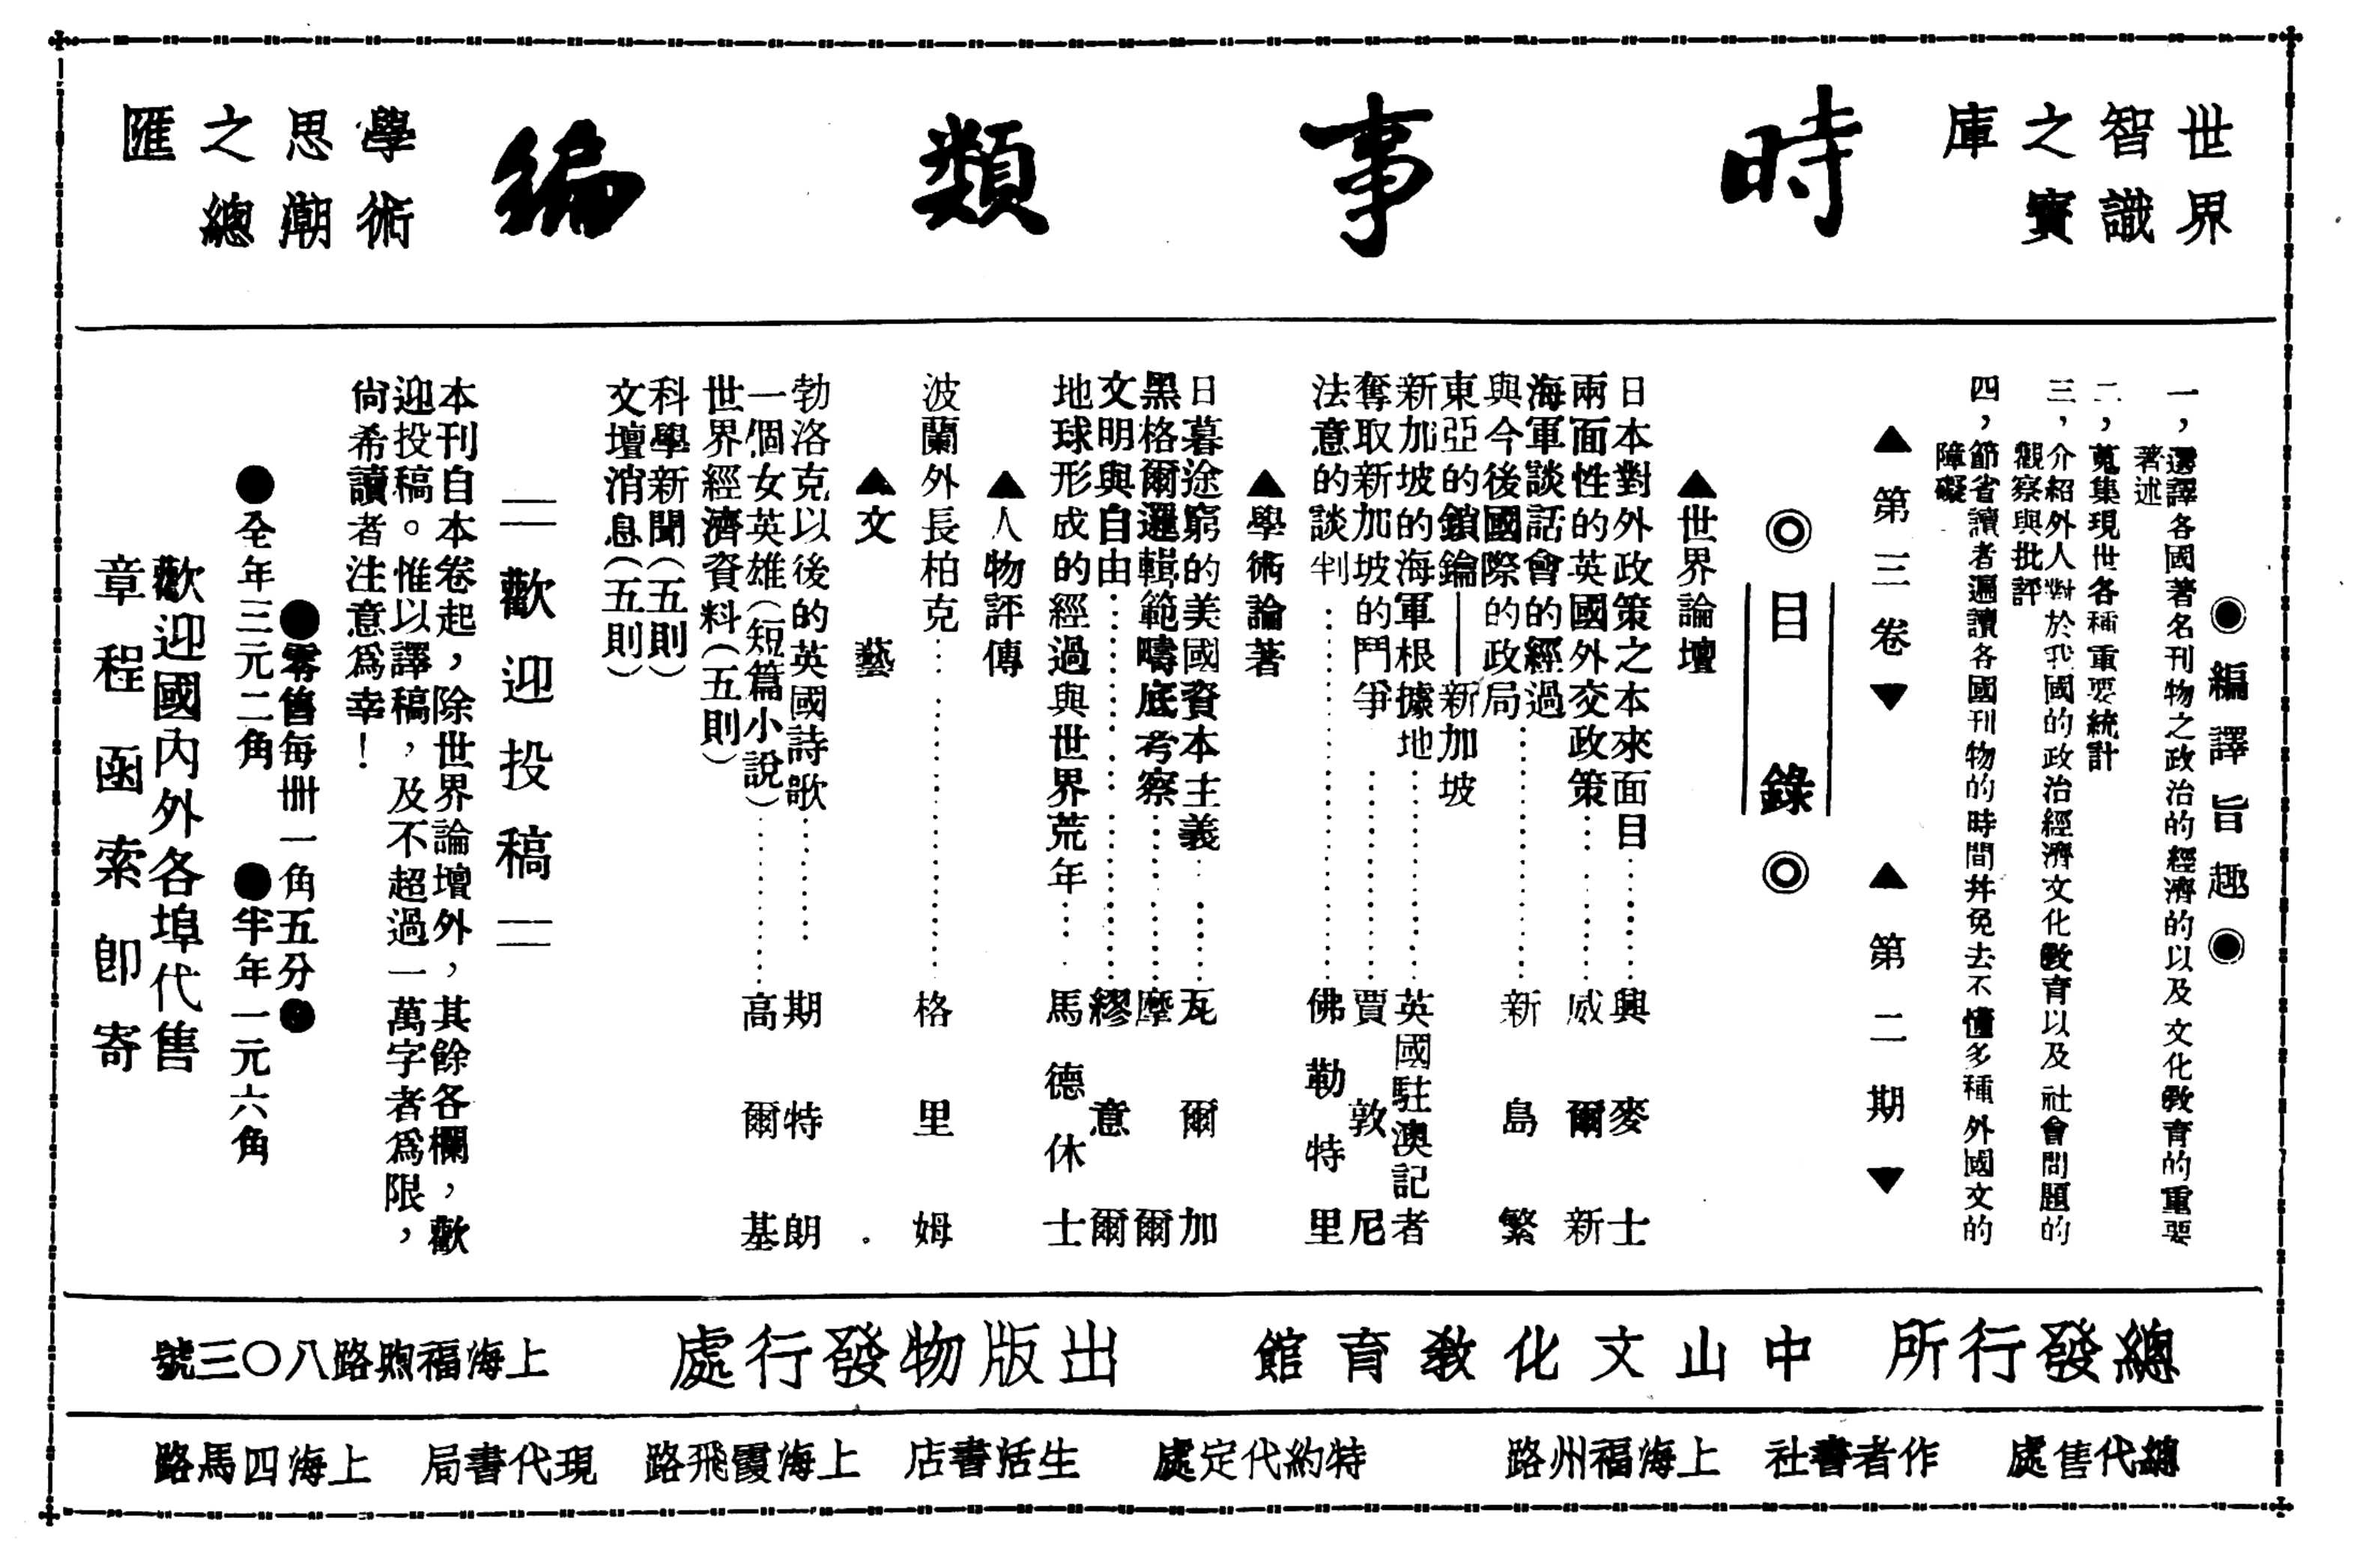 世界
智識
之寶
庫
時事類編
學術
思潮
之總
匯
◉編譯旨趣◉
一，選譯各國著名刊物之政治的經濟的以及文化教育的重要
著述
二，蒐集現世各種重要統計
三，介紹外人對於我國的政治經濟文化教育以及社會問題的
觀察與批評
四，節省讀者遍讀各國刊物的時間幷免去不懂多種外國文的
障礙
▲第三卷▼　▲第二期▼
◎目錄◎
▲世界論壇
日本對外政策之本來面目……興麥士
兩面性的英國外交政策……威爾新
海軍談話會的經過
與今後國際的政局……新島繁
東亞的鎖鑰——新加坡
新加坡的海軍根據地……英國駐澳記者
奪取新加坡的鬥爭……賈敦尼
法意的談判……佛勒特里
▲學術論著
日暮途窮的美國資本主義……瓦爾加
黑格爾邏輯範疇底考察……摩爾
文明與自由……繆意爾
地球形成的經過與世界荒年……馬德休士
▲人物評傳
波蘭外長柏克……格里姆
▲文藝
勃洛克以後的英國詩歌……期特朗
一個女英雄(短篇小說)……高爾基
世界經濟資料(五則)
科學新聞(五則)
文壇消息(五則)
＝歡迎投稿＝
本刊自本卷起，除世界論壇外，其餘各欄，歡
迎投稿。惟以譯稿，及不超過一萬字者爲限，
尙希讀者注意爲幸！
●零售每冊一角五分●
●全年三元二角　●半年一元六角
歡迎國內外各埠代售
章程函索卽寄
總發行所　中山文化教育館　出版物發行處　上海福煦路八〇三號
總代售處　作者書社　上海福州路　特約代定處　生活書店　上海霞飛路　現代書局　上海四馬路